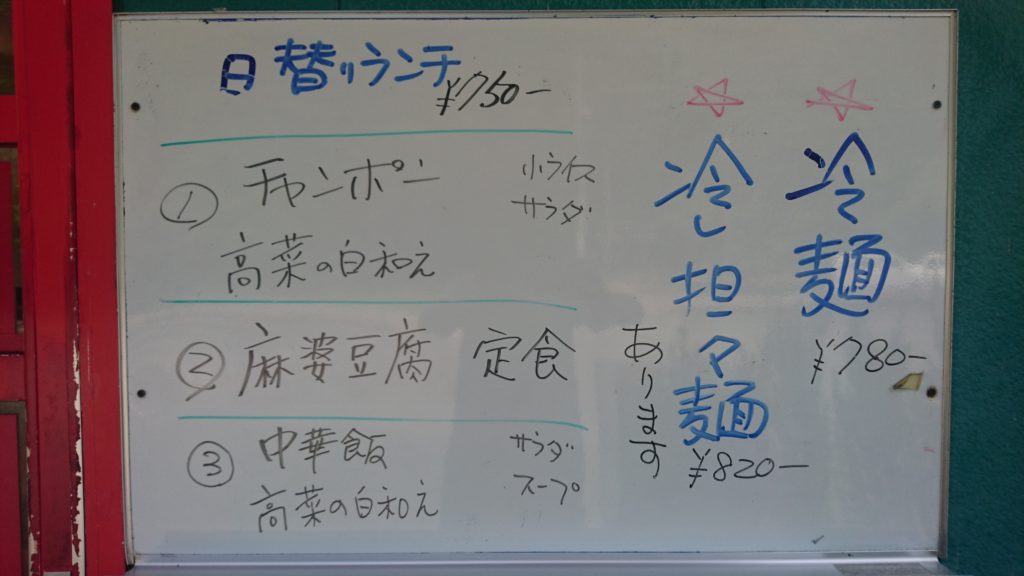 日替りランチ
¥750-
① チャンポン 小ライス
サラダ
高菜の白和え
② 麻婆豆腐 定食
③ 中華飯 サラダ
スープ
高菜の白和え
☆冷麺
¥780-
☆冷し担々麺
¥820-
あります